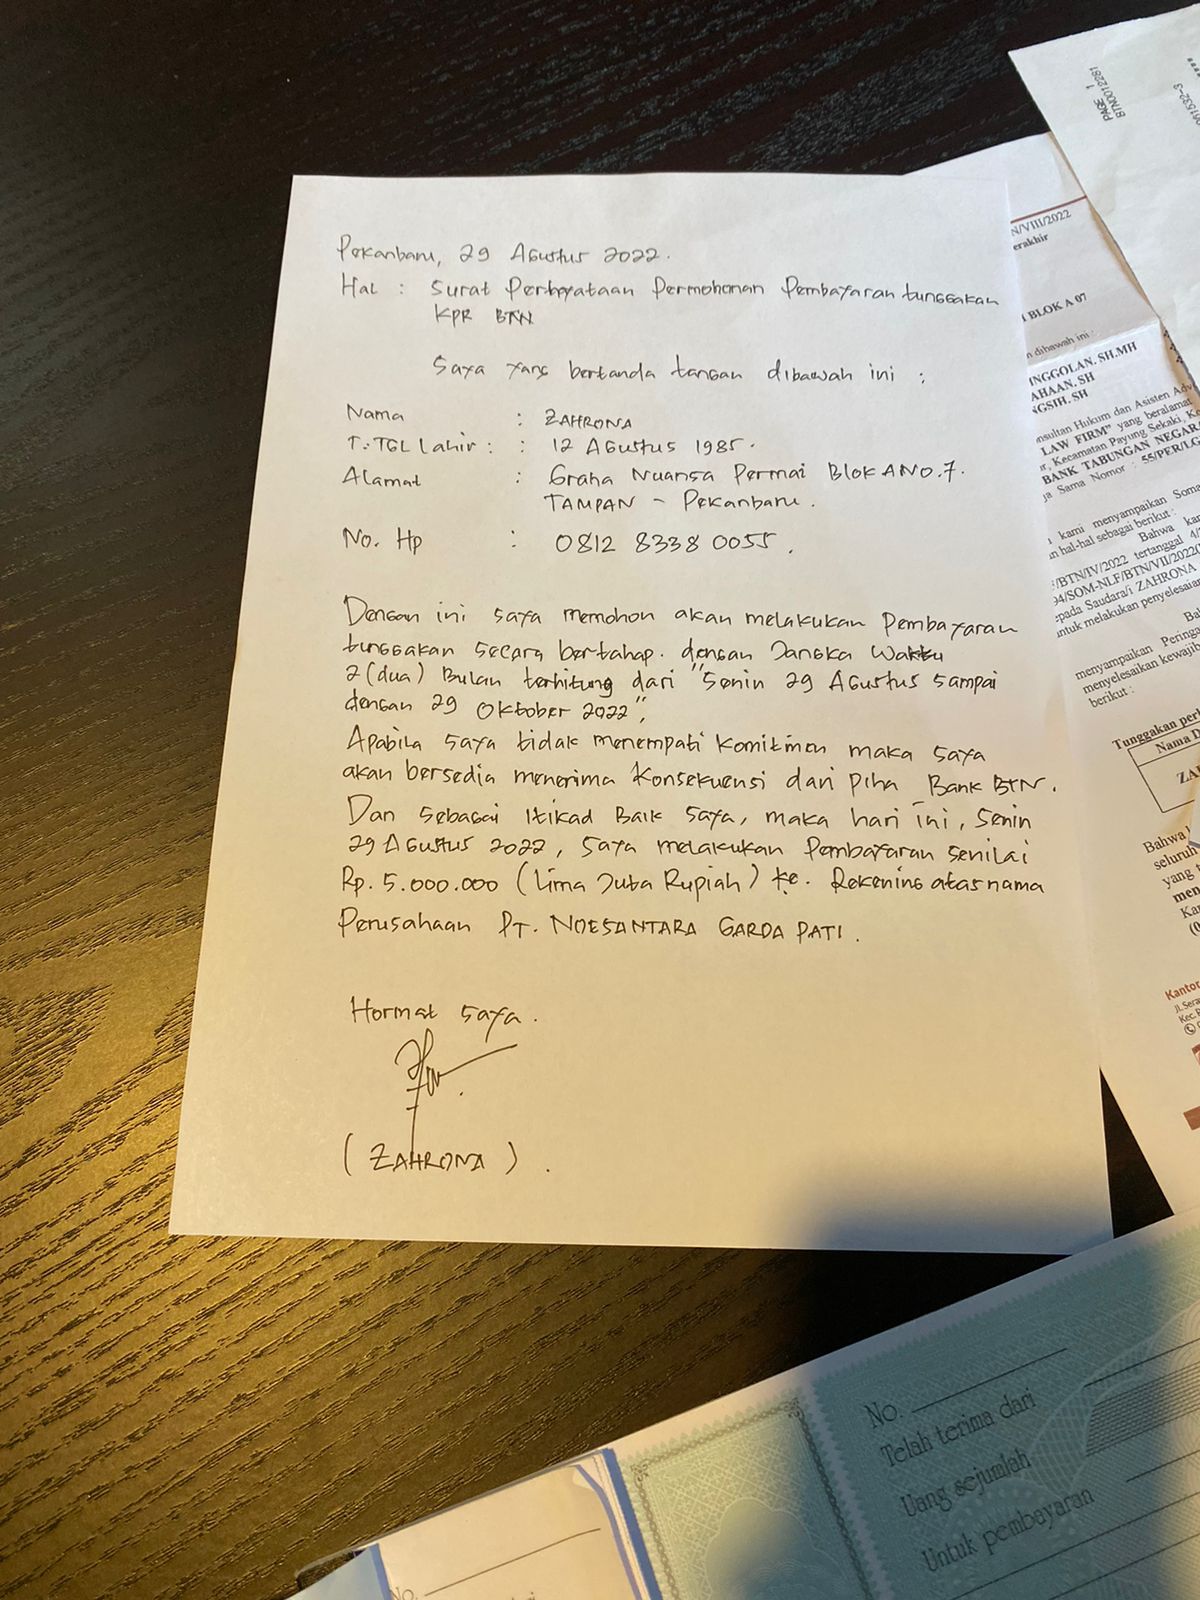 Pekanbaru, 29 Agustus 2022.
Hal : Surat Pernyataan Permohonan Pembayaran tunggakan
KPR BTN
Saya yang bertanda tangan dibawah ini :
Nama : ZAHRONA
T.TGL Lahir : : 12 Agustus 1985.
Alamat : Graha Nuansa Permai Blok A NO.7.
TAMPAN - Pekanbaru.
No. Hp : 0812 8338 0055.
Dengan ini saya memohon akan melakukan Pembayaran
tunggakan secara bertahap. dengan Jangka Waktu
2 (dua) Bulan terhitung dari "Senin 29 Agustus Sampai
dengan 29 Oktober 2022",
Apabila saya tidak menempati komitmen maka saya
akan bersedia menerima Konsekuensi dari Piha Bank BTN.
Dan sebagai Itikad Baik saya, maka hari ini, Senin
29 Agustus 2022, saya melakukan Pembayaran senilai
Rp. 5.000.000 (Lima Juta Rupiah) ke. Rekening atas nama
Perusahaan PT. NOESANTARA GARDA PATI.
Hormat saya.
(ZAHRONA).
PAGE 1
BTN0012281
N/VIII/2022
erakhir
I BLOK A 07
n dibawah ini :
INGGOLAN. SH.MH
AHAAN. SH
NGSIH. SH
onsultan Hukum dan Asisten Adv
LAW FIRM" yang beralamat
r, Kecamatan Payung Sekaki, K
BANK TABUNGAN NEGAR
ja Sama Nomor : 55/PER/LG
kami menyampaikan Soma
n hal-hal sebagai berikut :
Bahwa kar
/BTN/IV/2022 tertanggal 4/
94/SOM-NLF/BTN/VII/2022(
epada Saudara/i ZAHRONA
untuk melakukan penyelesaian
Ba
menyampaikan Peringa
menyelesaikan kewajib
berikut :
Tunggakan per
Nama D
ZA
Bahwa
seluruh
yang
men
Kar
(0
Kantor
Jl.Sera
Kec.
No.
Telah terima dari
Uang sejumlah
Untuk pembayaran
No.